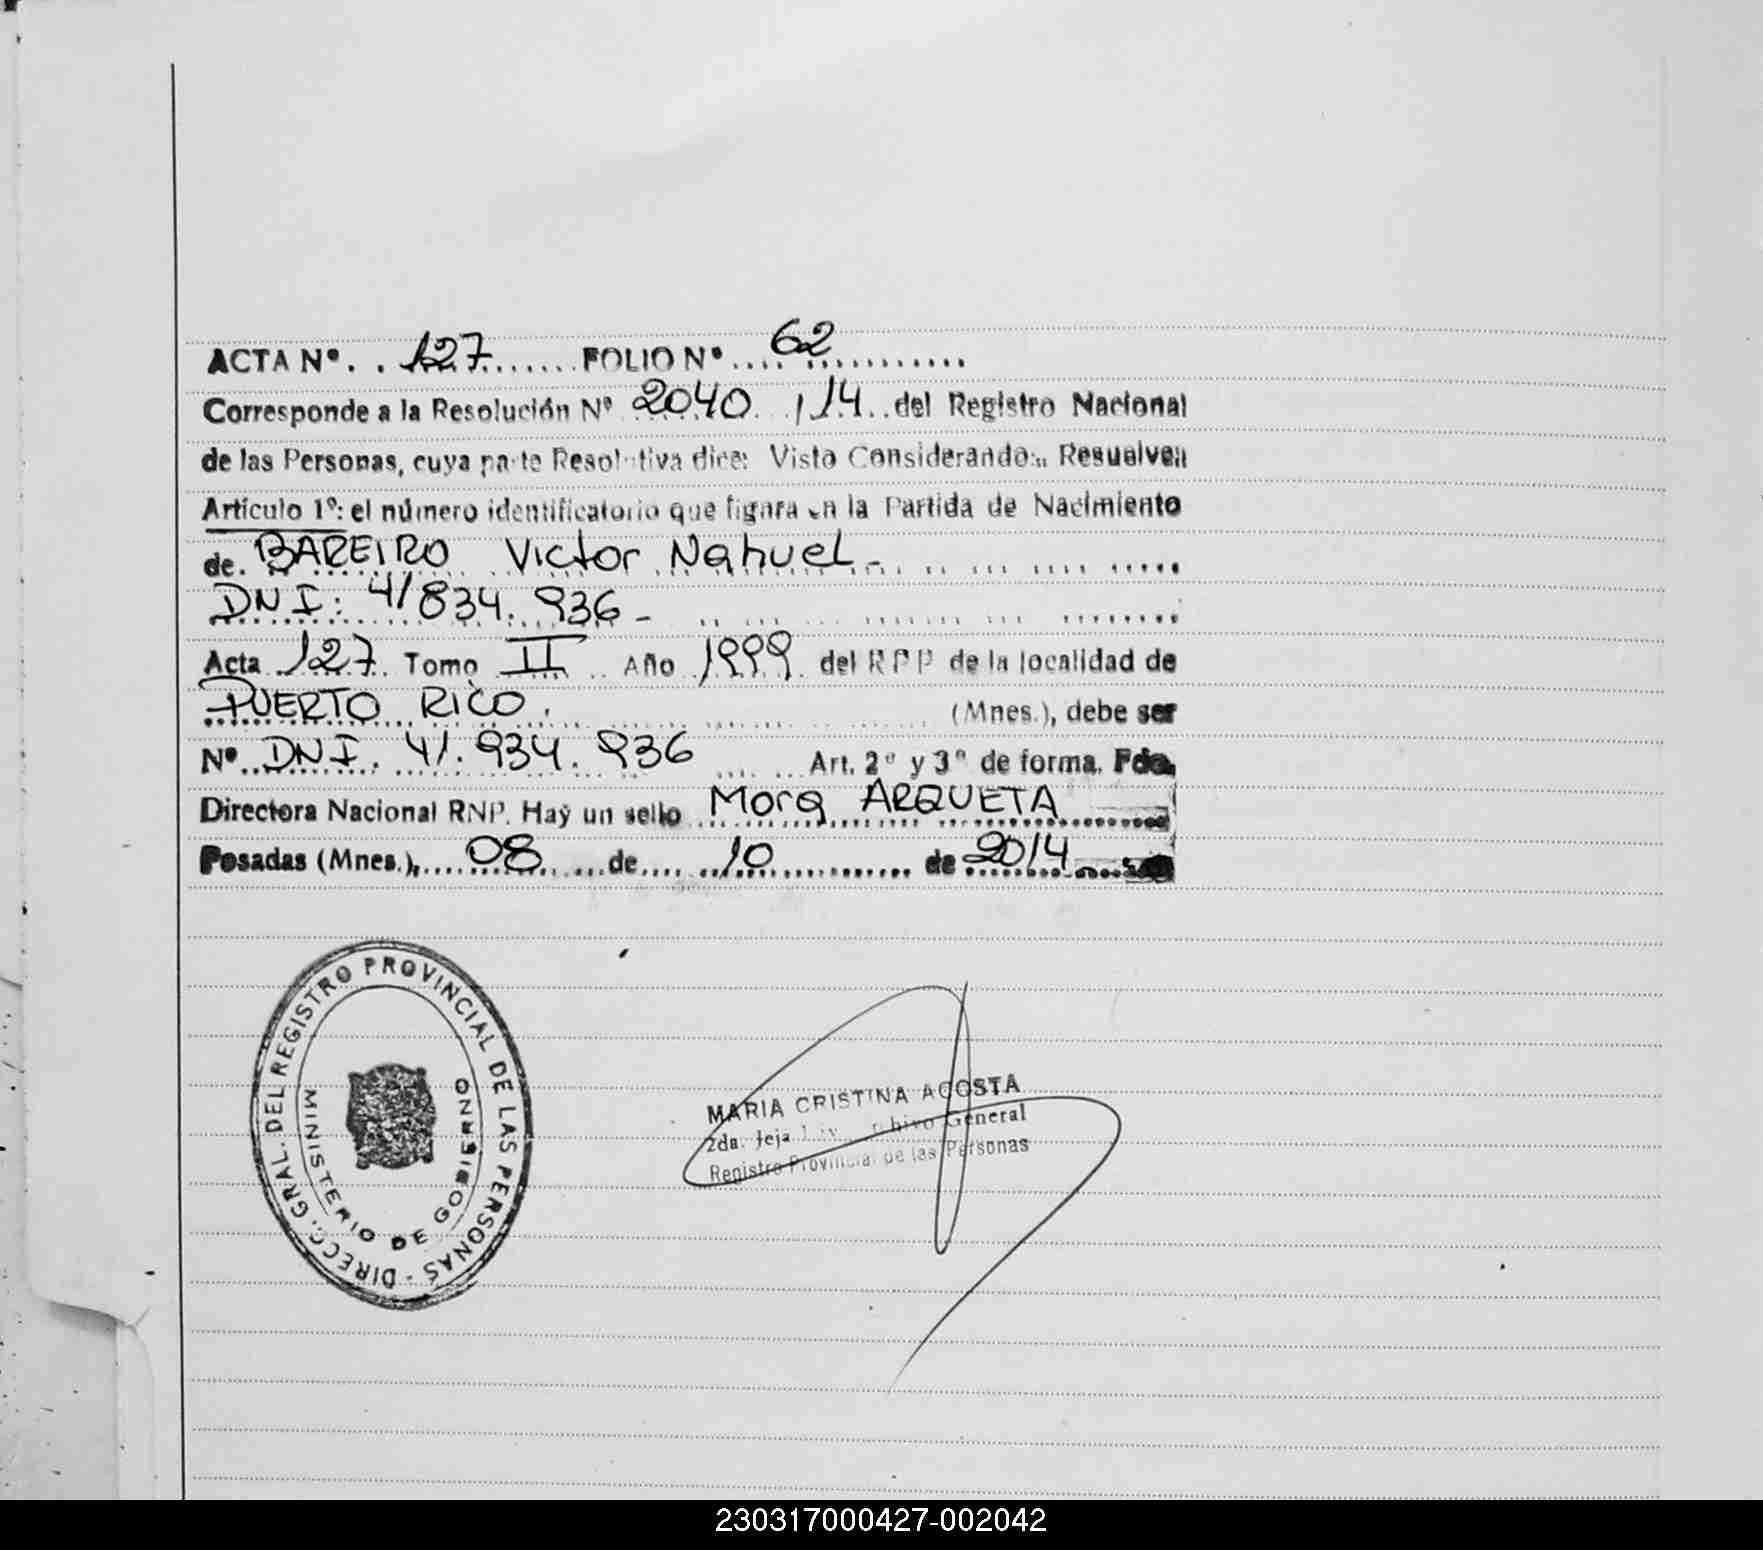 ACTA Nº. . 127....... FOLIO Nº.... 62 ...........
Corresponde a la Resolución Nº 2040 /14. del Registro Nacional
de las Personas, cuya parte Resolutiva dice: Visto Considerando:.. Resuelve:
Artículo 1º: el número identificatorio que figura en la Partida de Nacimiento
de. BAREIRO Victor Nahuel -
DNI: 41834.936 -
Acta 127 Tomo II Año 1999 del RPP de la localidad de
PUERTO RICO. (Mnes.), debe ser
Nº DNI. 41.934.936 Art. 2º y 3º de forma. Fdo.
Directora Nacional RNP. Hay un sello Mora ARQUETA
Posadas (Mnes.), 08 de 10 de 2014
DIRECC. GRAL. DEL REGISTRO PROVINCIAL DE LAS PERSONAS -
MINISTERIO DE GOBIERNO
MARIA CRISTINA ACOSTA
2da. Jefa General
Registro Provincial de las Personas
230317000427-002042